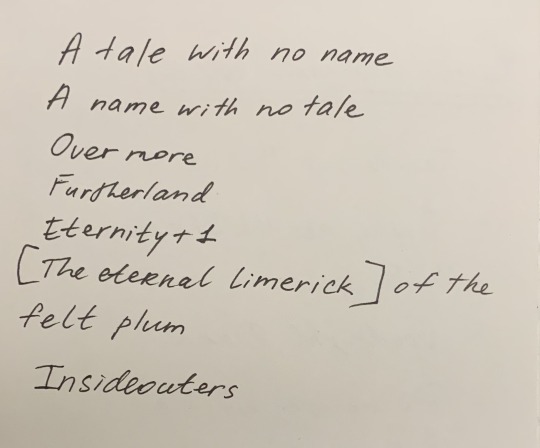 A tale with no name
A name with no tale
Over more
Furtherland
Eternity+1
[The eternal limerick] of the
felt plum
Insideouters